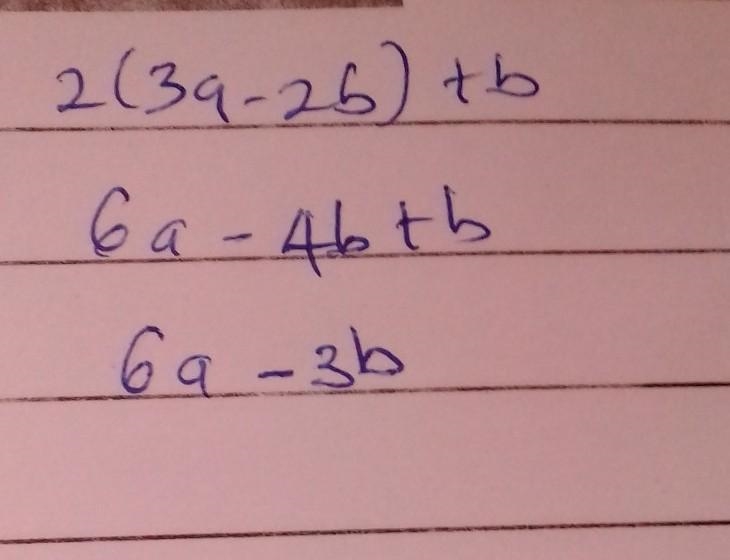 2(3a-2b) +b
6a - 4b + b
6a - 3b